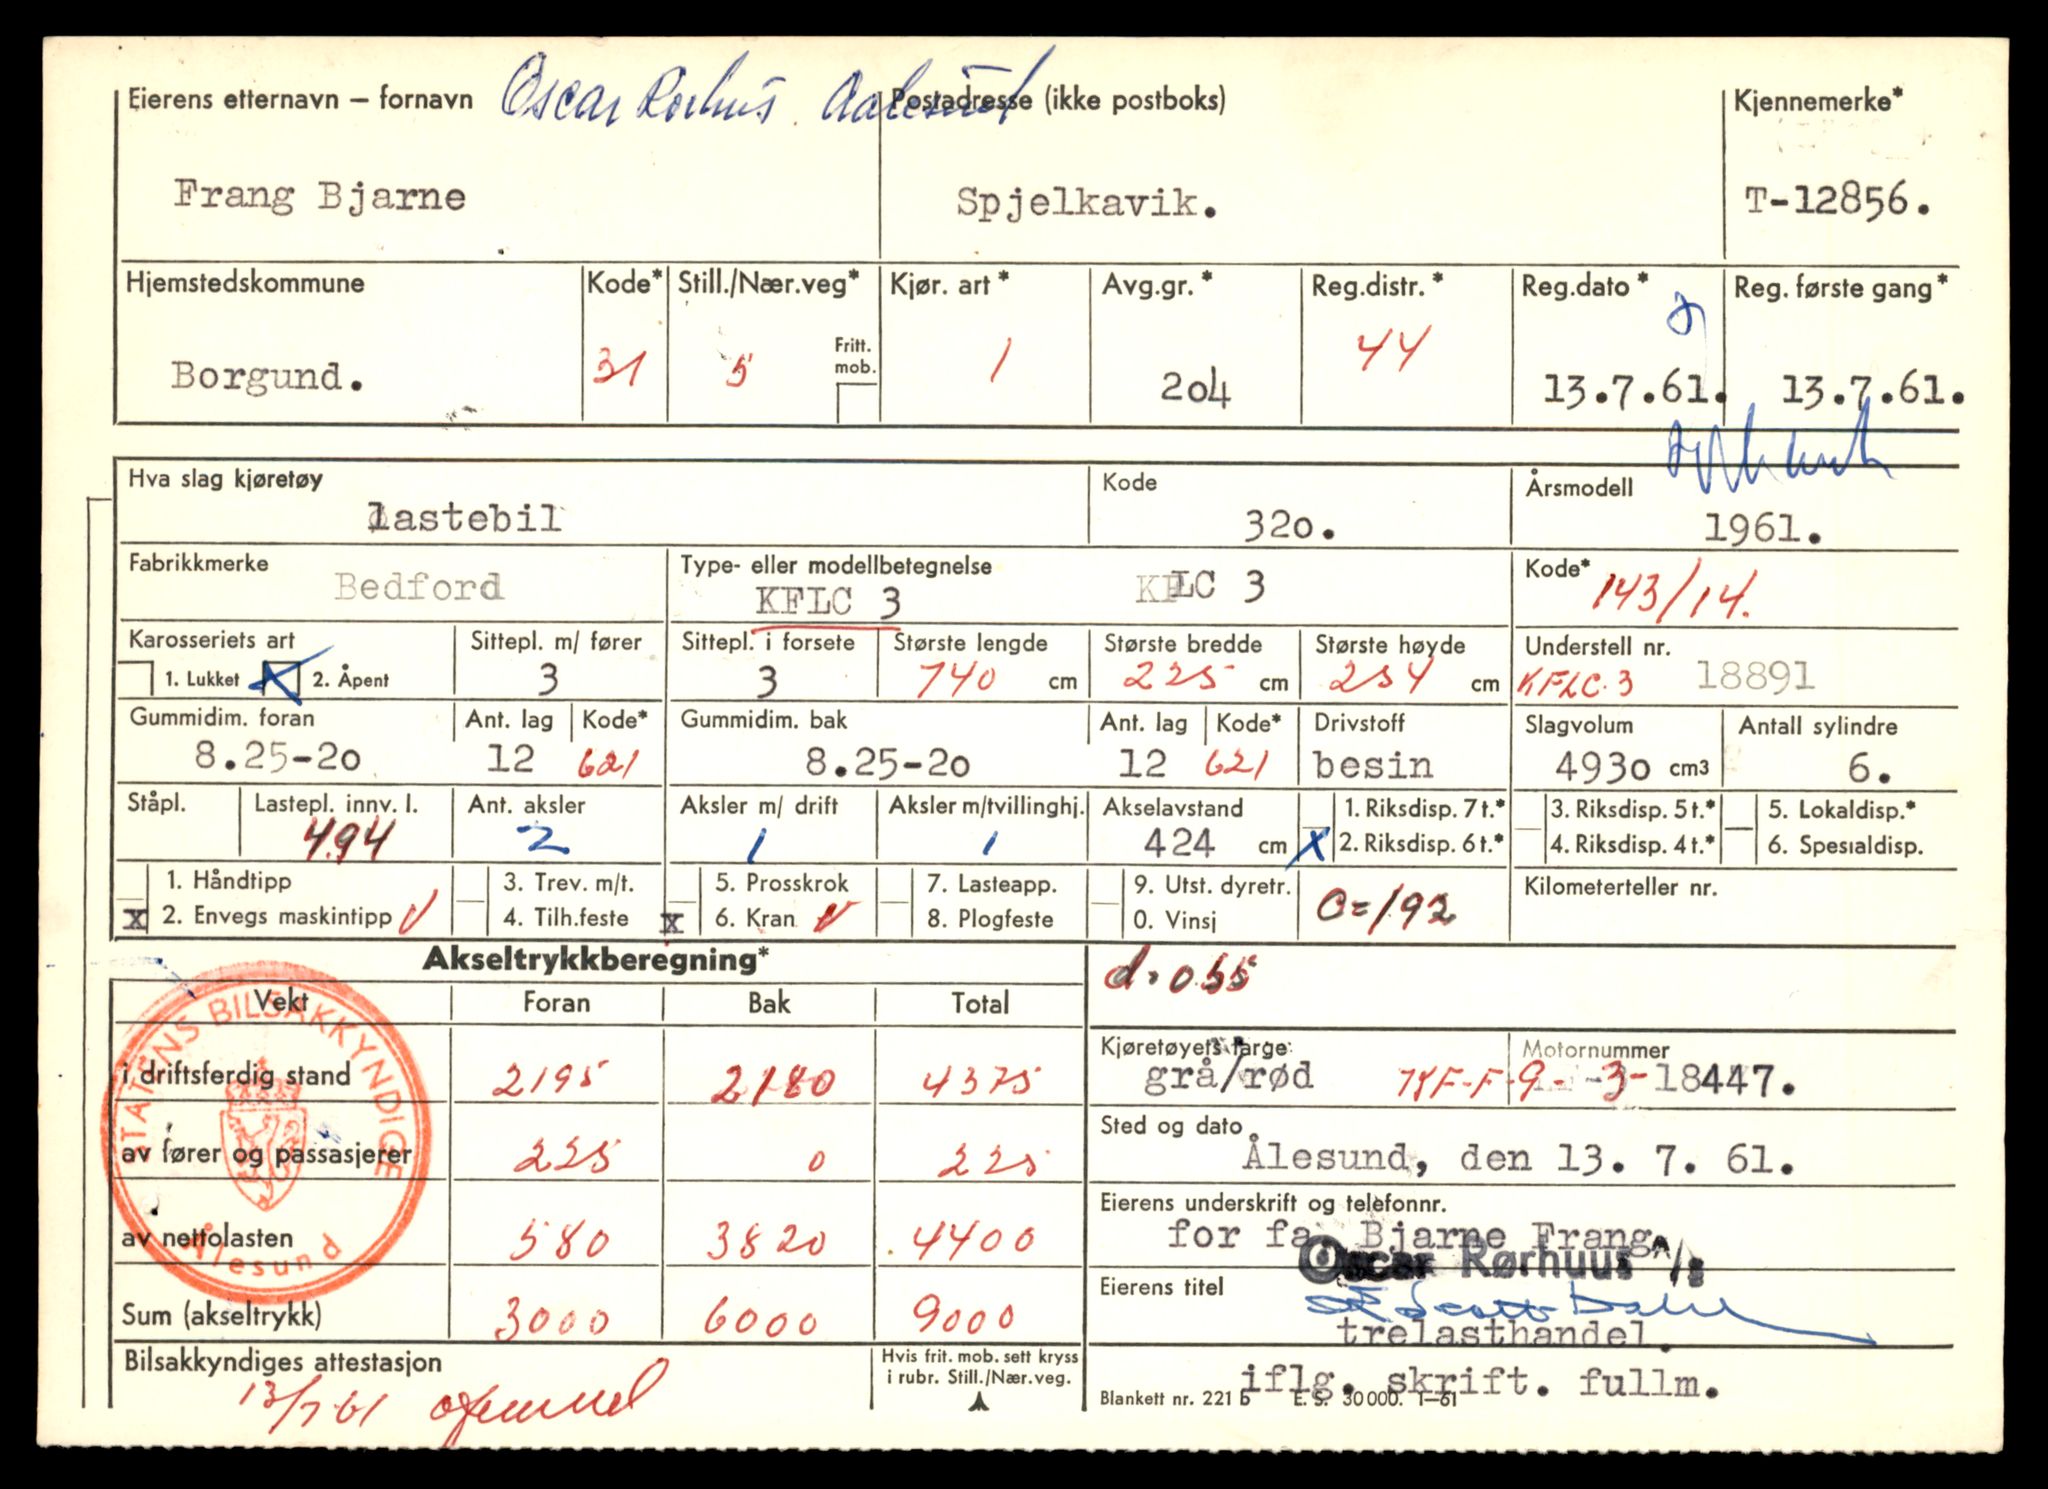 Eierens etternavn – fornavn Oscar Rørhus Aalesund Postadresse (ikke postboks) Kjennemerke*
Frang Bjarne Spjelkavik. T-12856.
Hjemstedskommune Kode* Still./Nær.veg* Kjør. art* Avg.gr.* Reg.distr.* Reg.dato* Reg. første gang*
Fritt. mob.
Borgund. 31 5 1 204 44 13.7.61. 13.7.61.
Hva slag kjøretøy Kode Årsmodell
lastebil 320. 1961.
Fabrikkmerke Type- eller modellbetegnelse Kode*
Bedford KFLC 3 KFLC 3 143/14.
Karosseriets art Sittepl. m/ fører Sittepl. i forsete Største lengde Største bredde Største høyde Understell nr.
1. Lukket X 2. Åpent 3 3 740 cm 225 cm 254 cm KFLC.3 18891
Gummidim. foran Ant. lag Kode* Gummidim. bak Ant. lag Kode* Drivstoff Slagvolum Antall sylindre
8.25-20 12 621 8.25-20 12 621 besin 4930 cm3 6.
Ståpl. Lastepl. innv. l. Ant. aksler Aksler m/ drift Aksler m/tvillinghj. Akselavstand 1. Riksdisp. 7 t.* 3. Riksdisp. 5 t.* 5. Lokaldisp.*
4.94 2 1 1 424 cm X 2. Riksdisp. 6 t.* 4. Riksdisp. 4 t.* 6. Spesialdisp.
1. Håndtipp 3. Trev. m/t. 5. Prosskrok 7. Lasteapp. 9. Utst. dyretr. Kilometerteller nr.
X 2. Envegs maskintipp V 4. Tilh.feste X 6. Kran V 8. Plogfeste 0. Vinsj C=192
Akseltrykkberegning* d.055
Vekt Foran Bak Total
i driftsferdig stand 2195 2180 4375
Kjøretøyets farge Motornummer
grå/rød KF-F-9-3-18447.
av fører og passasjerer 225 0 225
Sted og dato
Ålesund, den 13. 7. 61.
av nettolasten 580 3820 4400
Eierens underskrift og telefonnr.
for fa. Bjarne Frang
Oscar Rørhuus A/s
Sum (akseltrykk) 3000 6000 9000
Eierens titel
trelasthandel.
Bilsakkyndiges attestasjon
Hvis frit. mob. sett kryss
i rubr. Still./Nær.veg.
iflg. skrift. fullm.
13/7 61
Blankett nr. 221 b E. S. 30 000. 1–61
STATENS BILSAKKYNDIGE
Ålesund